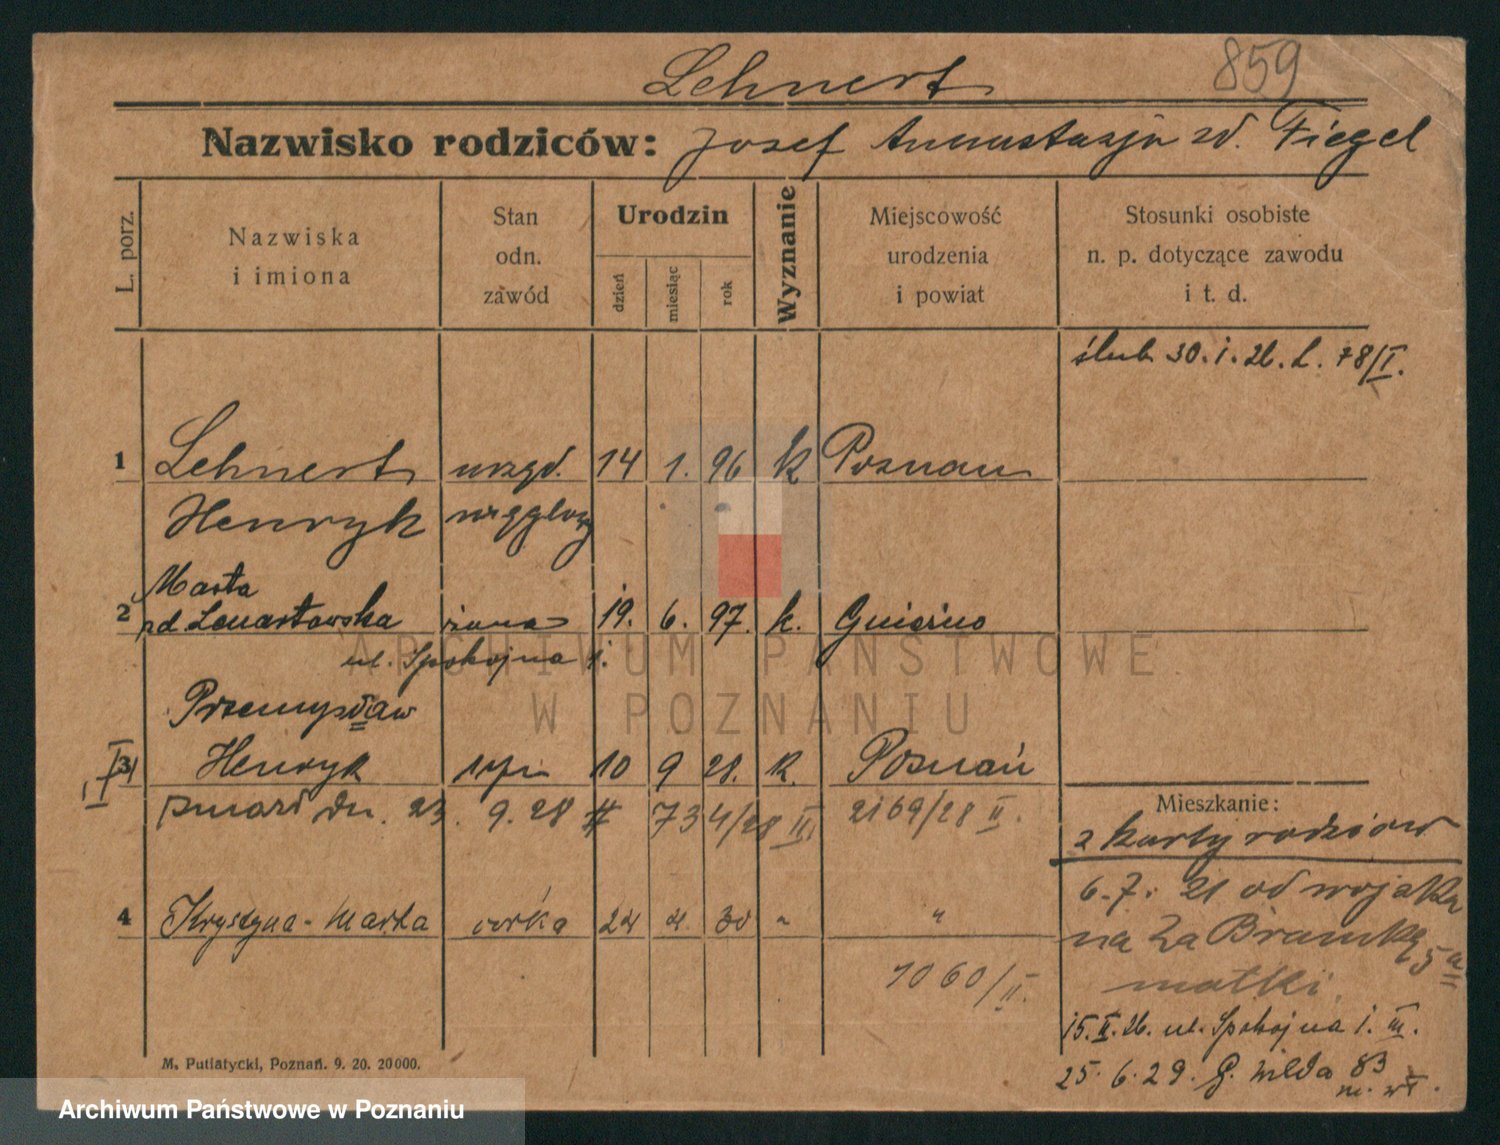 Lehnert
859
Nazwisko rodziców: Josef Anastazja zd. Fiegel
L. porz.
Nazwiska i imiona
Stan odn. zawód
Urodzin
dzień
miesiąc
rok
Wyznanie
Miejscowość urodzenia i powiat
Stosunki osobiste n. p. dotyczące zawodu i t. d.
ślub 30. i. 26. L. 78/I.
1 Lehnert urzęd. 14 1. 96 k Poznań
Henryk węglowy
Marta
2 zd. Lenartowska żona 19. 6. 97. k. Gniezno
ul. Spokojna 1.
Przemysław
3 Henryk syn 10 9 28. k. Poznań
zmarł dn. 23. 9. 28 # 734/28 II. 2169/28 II.
Mieszkanie:
z karty rodziców
4 Krystyna-Marta córka 24 2. 30 " "
6. 7. 21 od wojaka
na Za Bramką 5a
matki
1060/II.
15. II. 26. ul. Spokojna 1. III.
25. 6. 29. G. Wilda 83
M. Putiatycki, Poznań. 9. 20. 20000.
ARCHIWUM PAŃSTWOWE
W POZNANIU
Archiwum Państwowe w Poznaniu